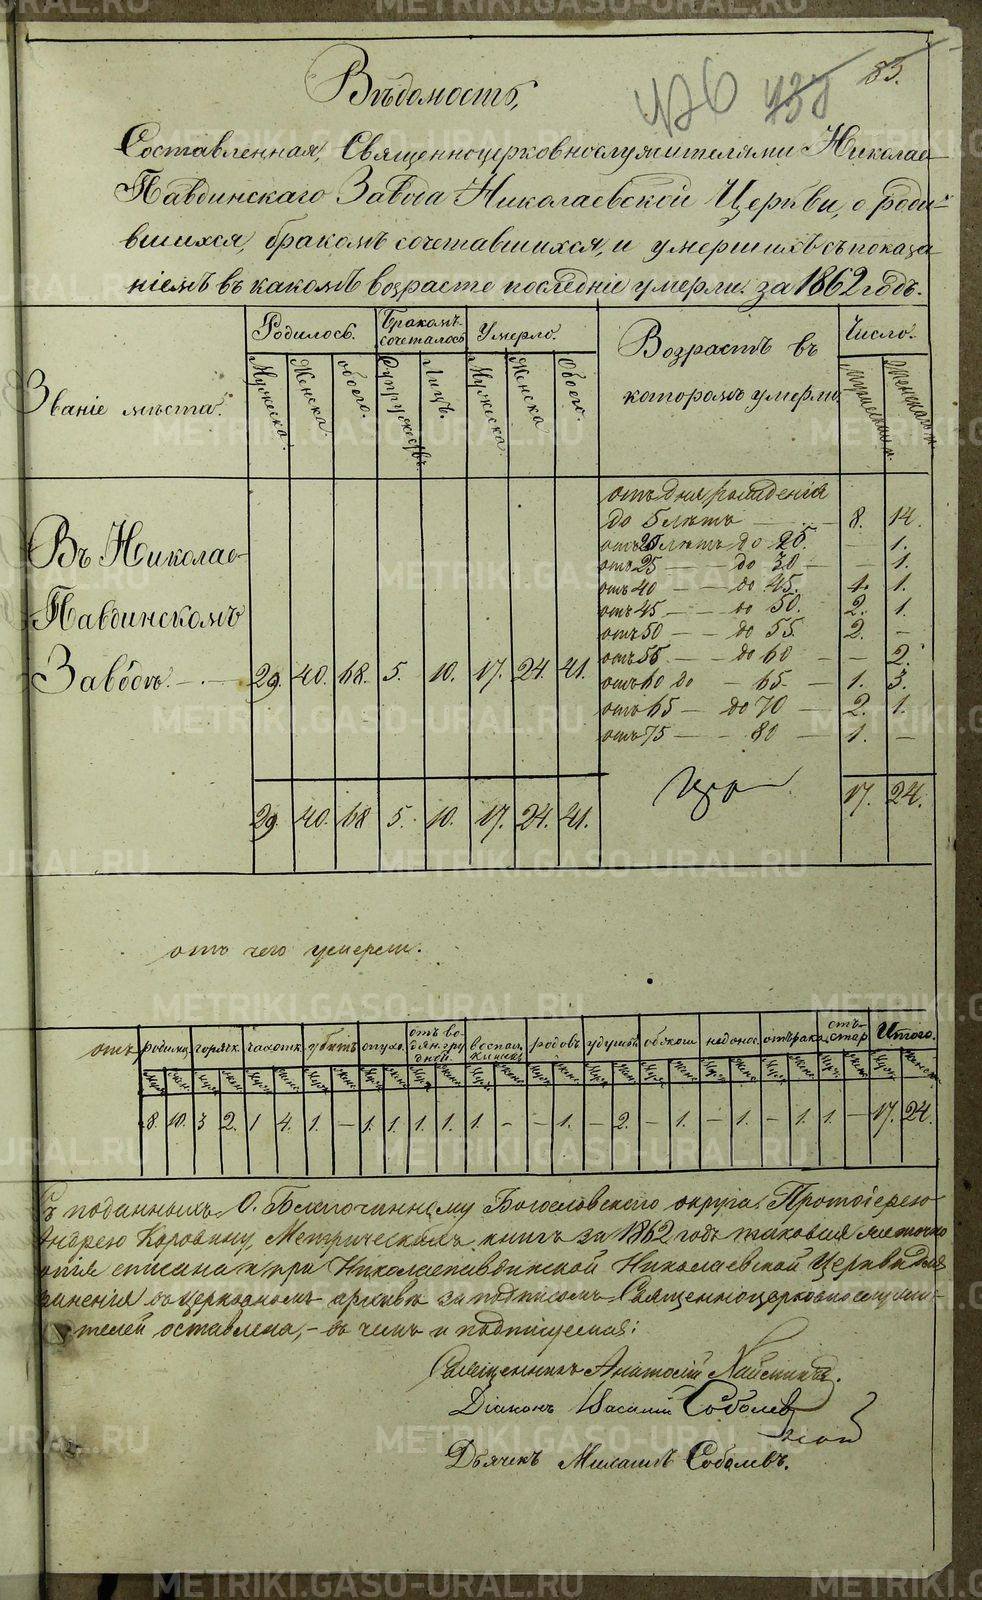 83.
Вѣдомость,
Составленная, Священноцерковнослужителями Николае-
Павдинскаго Завода Николаевской Церкви, о роди-
вшихся, бракомъ сочетавшихся, и умершихъ съ показа-
ніемъ въ какомъ возрасте последніе умерли. за 1862 годъ.
Званіе мѣста. Родилось. Бракомъ сочеталось Умерло. Возрастъ въ которомъ умерло Число.
Мужеска. Женска. обоего. Супружествъ. Лицъ. Мужеска. Женска Обоего.
отъ дня рожденія
до 5 лѣтъ — — 8. 14.
лѣтъ до 25. — 1.
отъ 25 — — до 30 — — 1.
отъ 40 — — до 45. 1. 1.
отъ 45 — — до 50. 2. 1.
отъ 50 — — до 55. 2. —
отъ 55 — — до 60 — — 2.
отъ 60 до — 65 — 1. 3.
отъ 65 — до 70 — 2. 1.
отъ 75 — — 80 — 1. —
Въ Николае-
Павдинскомъ
Заводѣ. — 29. 40. 68. 5. 10. 17. 24. 41.
17. 24.
29. 40. 68 5. 10. 17. 24. 41.
отъ чего умерли.
отъ родимц горячк. чахотк. убитъ опухо. отъ водян. грудной. воспал. кишекъ родовъ удушь обжог недонос. отъ рака отъ стар Итого.
8. 10. 3 2. 1 4. 1. — 1. 1. 1. 1. 1. — — 1. — 2. — 1. — 1. — 1. 1. — 17. 24.
Съ поданныхъ О. Благочинному Богословскаго округа Протоіерею
Андрею Коровину, Метрическихъ книгъ за 1862 годъ таковая же точно
копія списана и при Николаепавдинской Николаевской Церкви для
хранения въ церковномъ архивѣ за подписомъ Священноцерковнослужи-
телей оставлена, — въ чемъ и подписуемся:
Священникъ Анатолій
Діаконъ Василій Соболев
Дьячекъ Михаилъ Соболевъ.
METRIKI.GASO-URAL.RU